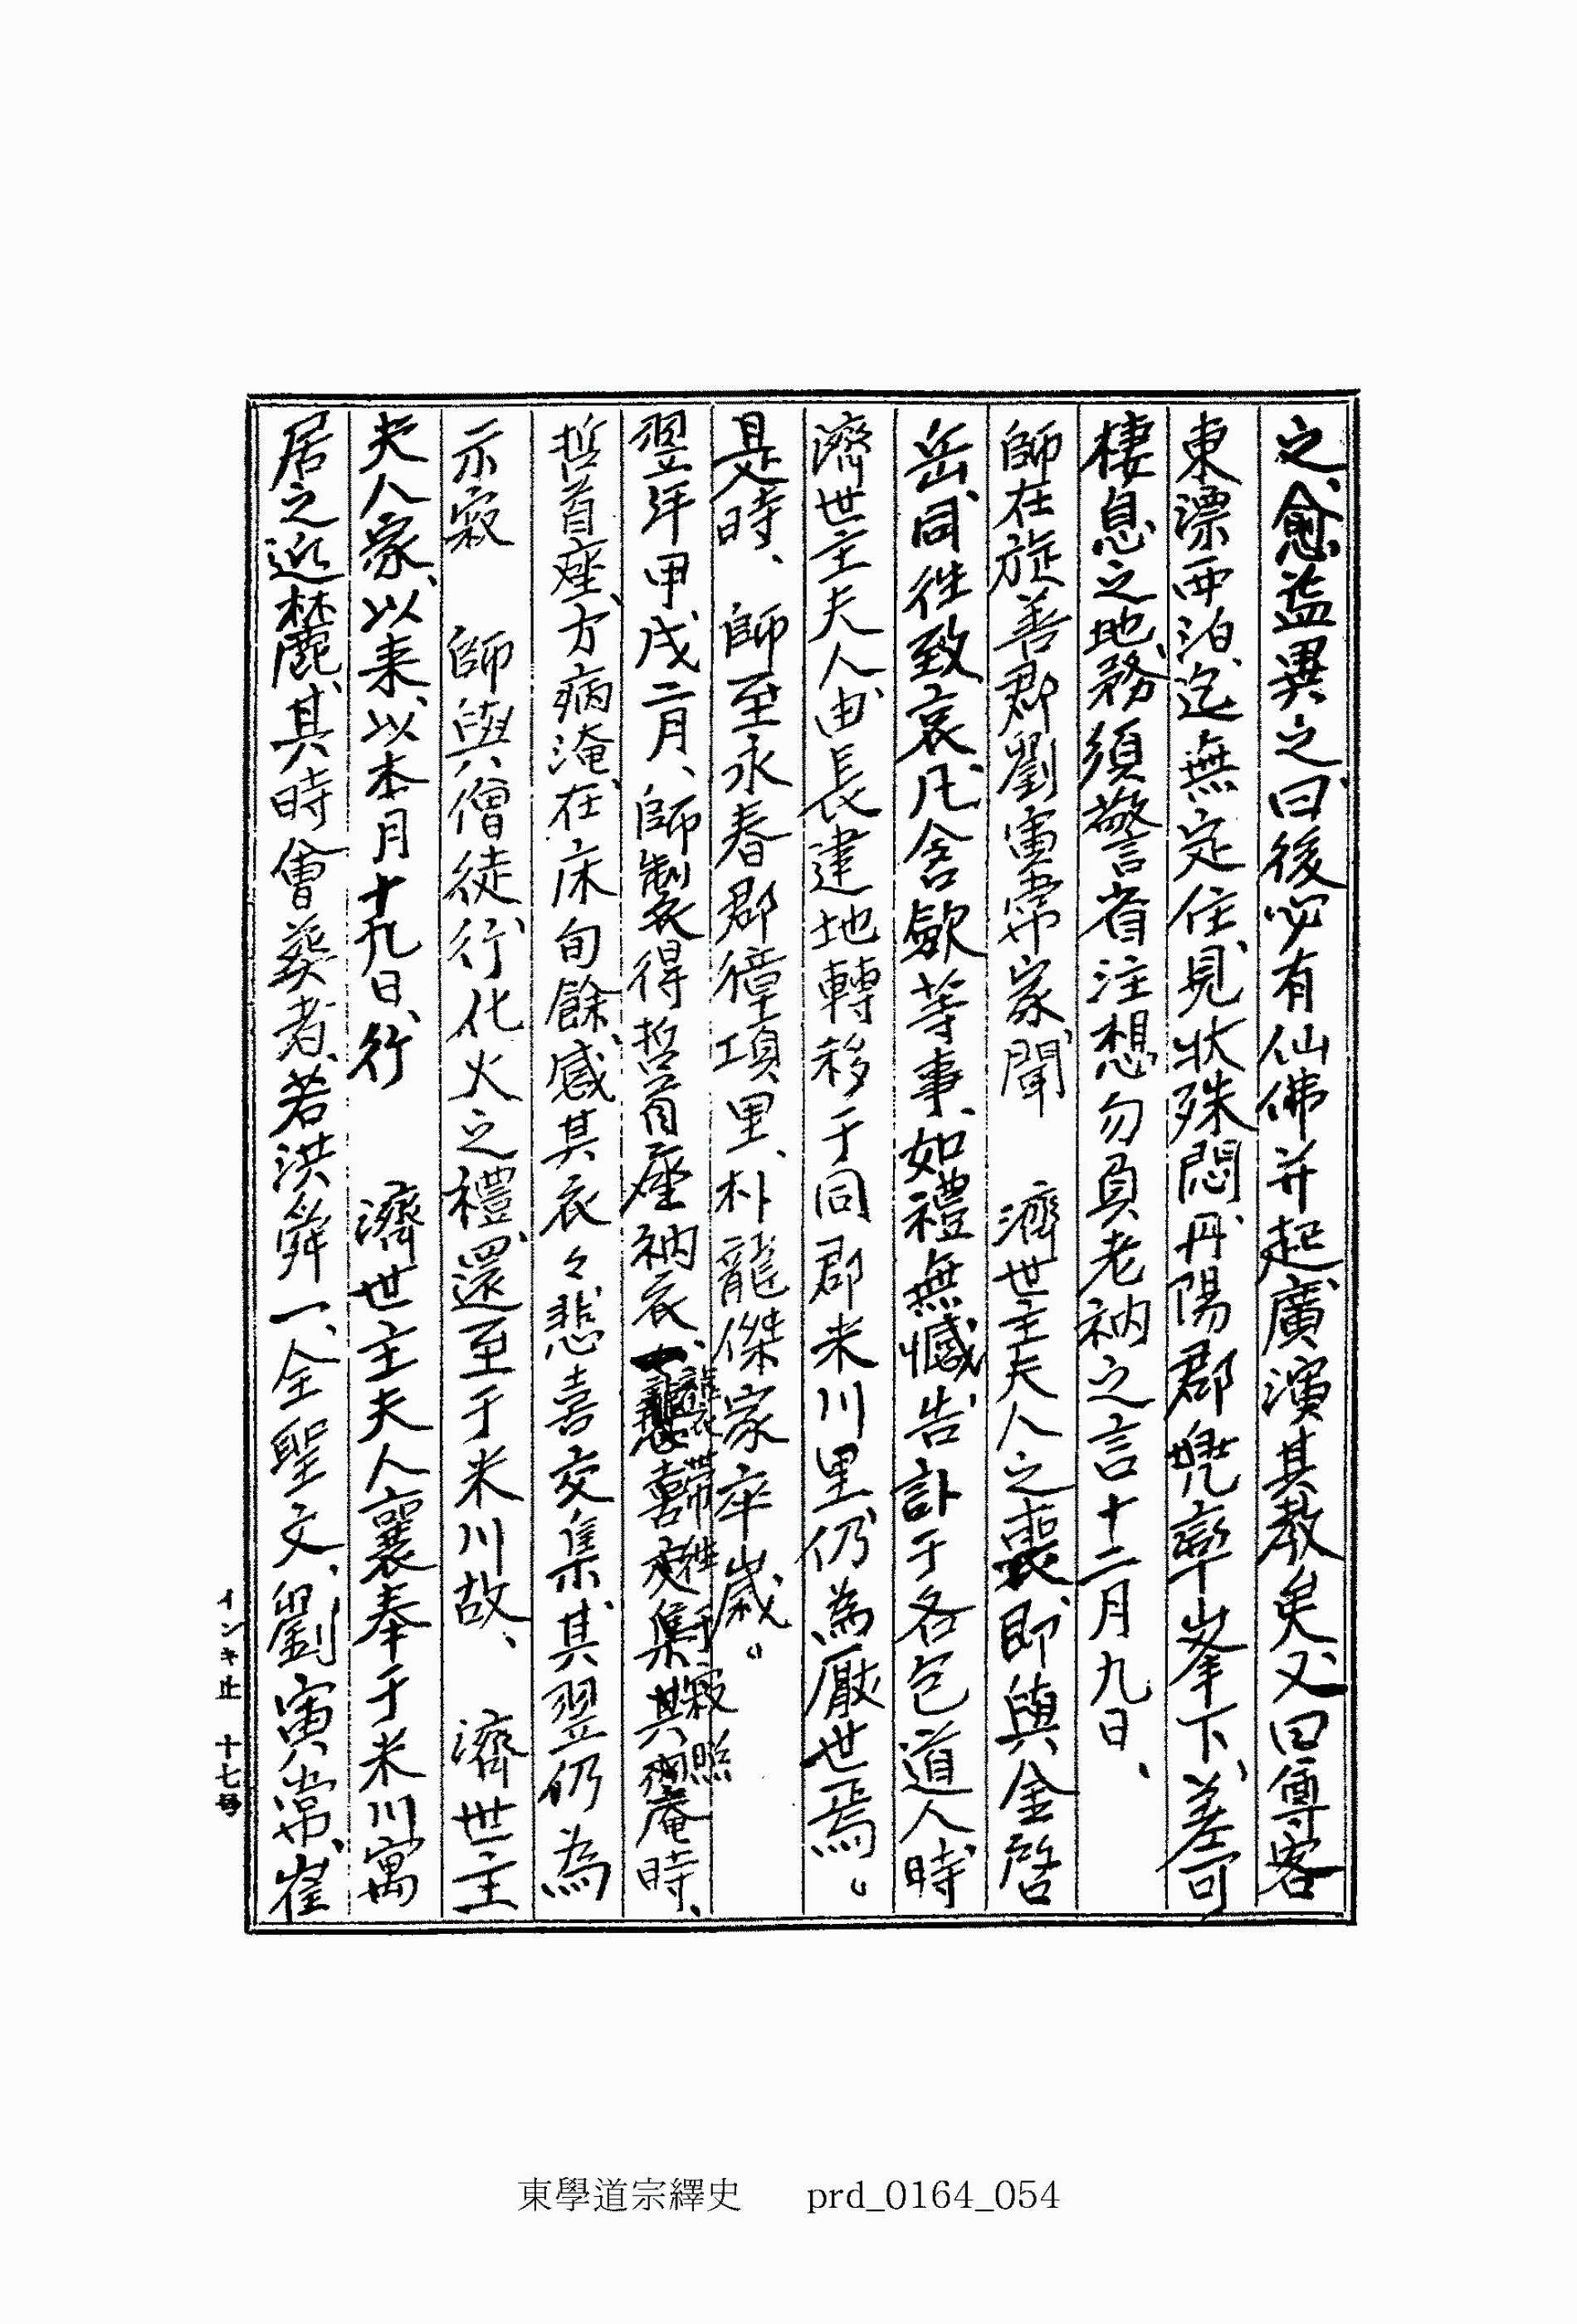 之、愈益異之、曰後必有仙佛并起、廣演其敎矣、又曰尊客
東漂西泊、迄無定住、見狀殊悶、丹陽郡兜率峯下、差可
棲息之地、務須警省注想勿負老衲之言十二月九日、
師在旌善郡劉寅常家、聞 濟世主夫人之喪、即與金啓
岳、同徃致哀、凡含歛等事、如禮無憾、告訃于各包道人、時
濟世主夫人、由長建地轉移于同郡米川里、仍為厭世焉。
是時、師至永春郡獐項里、朴龍傑家卒歲。
翌年甲戌二月、師製得哲首座衲衣、襲帶徃于寂照庵時、
哲首座、方病淹、在床旬餘、感其衣々、悲喜交集、其翌仍為
示寂 師與僧徒、行化火之禮、還至于米川故、 濟世主
夫人家、以来、以本月十九日、行 濟世主夫人襄奉于米川寓
居之近麓、其時會葬者、若洪舜一、全聖文、劉寅常、崔
インキ止 十七号
東學道宗繹史 prd_0164_054